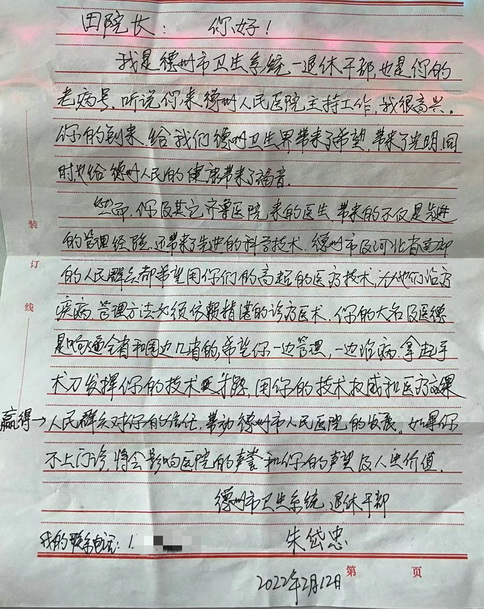 田院长：你好！
我是德州市卫生系统一退休干部，也是你的
老病号。听说你来德州人民医院主持工作，我很高兴。
你的到来给我们德州卫生界带来了希望，带来了光明，同
时也给德州人民的健康带来了福音。
您及其它齐鲁医院来的医生带来的不仅是先进
的管理经验，还带来了先进的科学技术。德州市及河北省
的人民群众都希望用你们的高超的医疗技术，为他们治疗
疾病，管理方法必须依赖精湛的诊疗医术，你的大名及医德
是响遍全省和周边几省的，希望你一边管理，一边治病，拿起手
术刀发挥你的技术，用你的技术权威和医疗效果
赢得→人民群众对你的信任，带动德州市人民医院的发展。如果你
不上门诊，将会影响医院的声誉和你的声望及人生价值。
德州市卫生系统退休干部
我的联系电话：1
朱岱忠
2022年2月12日
第 页
装
订
线